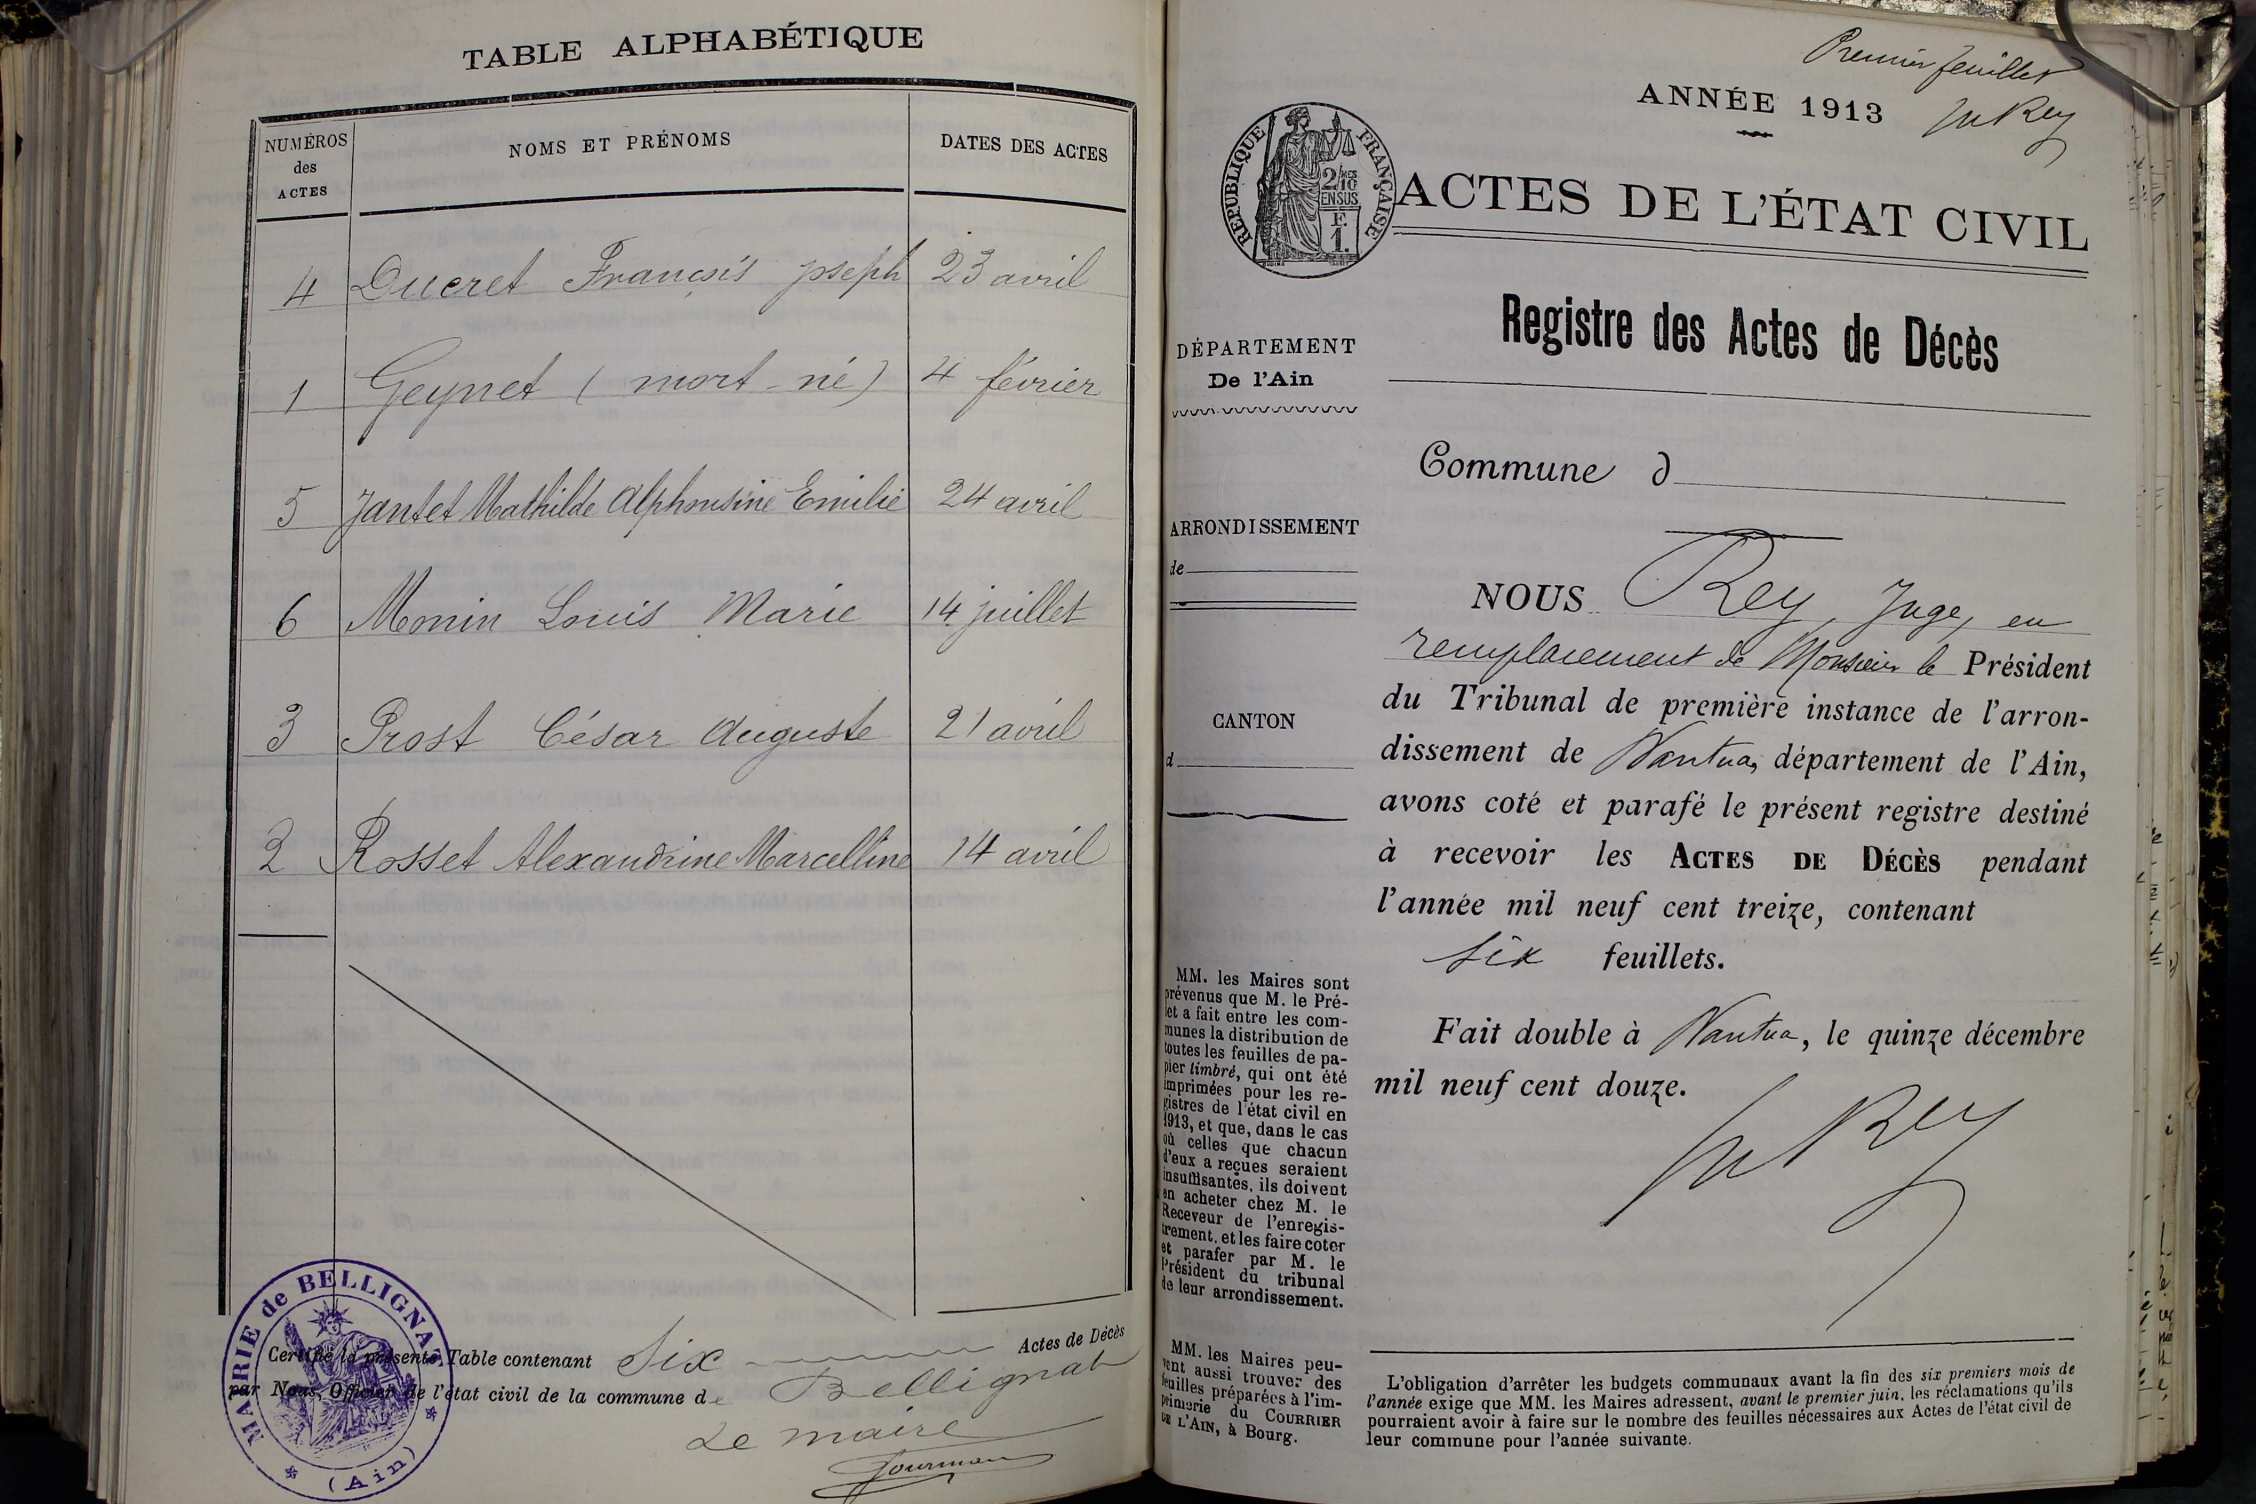 TABLE ALPHABÉTIQUE
NUMÉROS des ACTES NOMS ET PRÉNOMS DATES DES ACTES
4 Ducret François Joseph 23 avril
1 Geynet (mort-né) 4 février
5 Jantet Mathilde Alphonsine Emilie 24 avril
6 Monin Louis Marie 14 juillet
3 Prost César Auguste 21 avril
2 Rosset Alexandrine Marcelline 14 avril
Certifié la présente Table contenant Six Actes de Décès
par Nous, Officier de l'état civil de la commune de Bellignat
Le maire
MAIRIE de BELLIGNAT
(Ain)
Premier feuillet
Rey
ANNÉE 1913
RÉPUBLIQUE FRANÇAISE
2/10 EN SUS
F.
1.
ACTES DE L'ÉTAT CIVIL
Registre des Actes de Décès
DÉPARTEMENT
De l'Ain
Commune d
ARRONDISSEMENT
de
CANTON
d
NOUS Rey, Juge, en
remplacement de Monsieur le Président
du Tribunal de première instance de l'arron-
dissement de Nantua, département de l'Ain,
avons coté et parafé le présent registre destiné
à recevoir les ACTES DE DÉCÈS pendant
l'année mil neuf cent treize, contenant
six feuillets.
Fait double à Nantua, le quinze décembre
mil neuf cent douze.
Rey
MM. les Maires sont
prévenus que M. le Pré-
fet a fait entre les com-
munes la distribution de
toutes les feuilles de pa-
pier timbré, qui ont été
imprimées pour les re-
gistres de l'état civil en
1913, et que, dans le cas
où celles que chacun
d'eux a reçues seraient
insuffisantes, ils doivent
en acheter chez M. le
Receveur de l'enregis-
trement, et les faire coter
et parafer par M. le
Président du tribunal
de leur arrondissement.
MM. les Maires peu-
vent aussi trouver des
feuilles préparées à l'im-
primerie du COURRIER
DE L'AIN, à Bourg.
L'obligation d'arrêter les budgets communaux avant la fin des six premiers mois de
l'année exige que MM. les Maires adressent, avant le premier juin, les réclamations qu'ils
pourraient avoir à faire sur le nombre des feuilles nécessaires aux Actes de l'état civil de
leur commune pour l'année suivante.